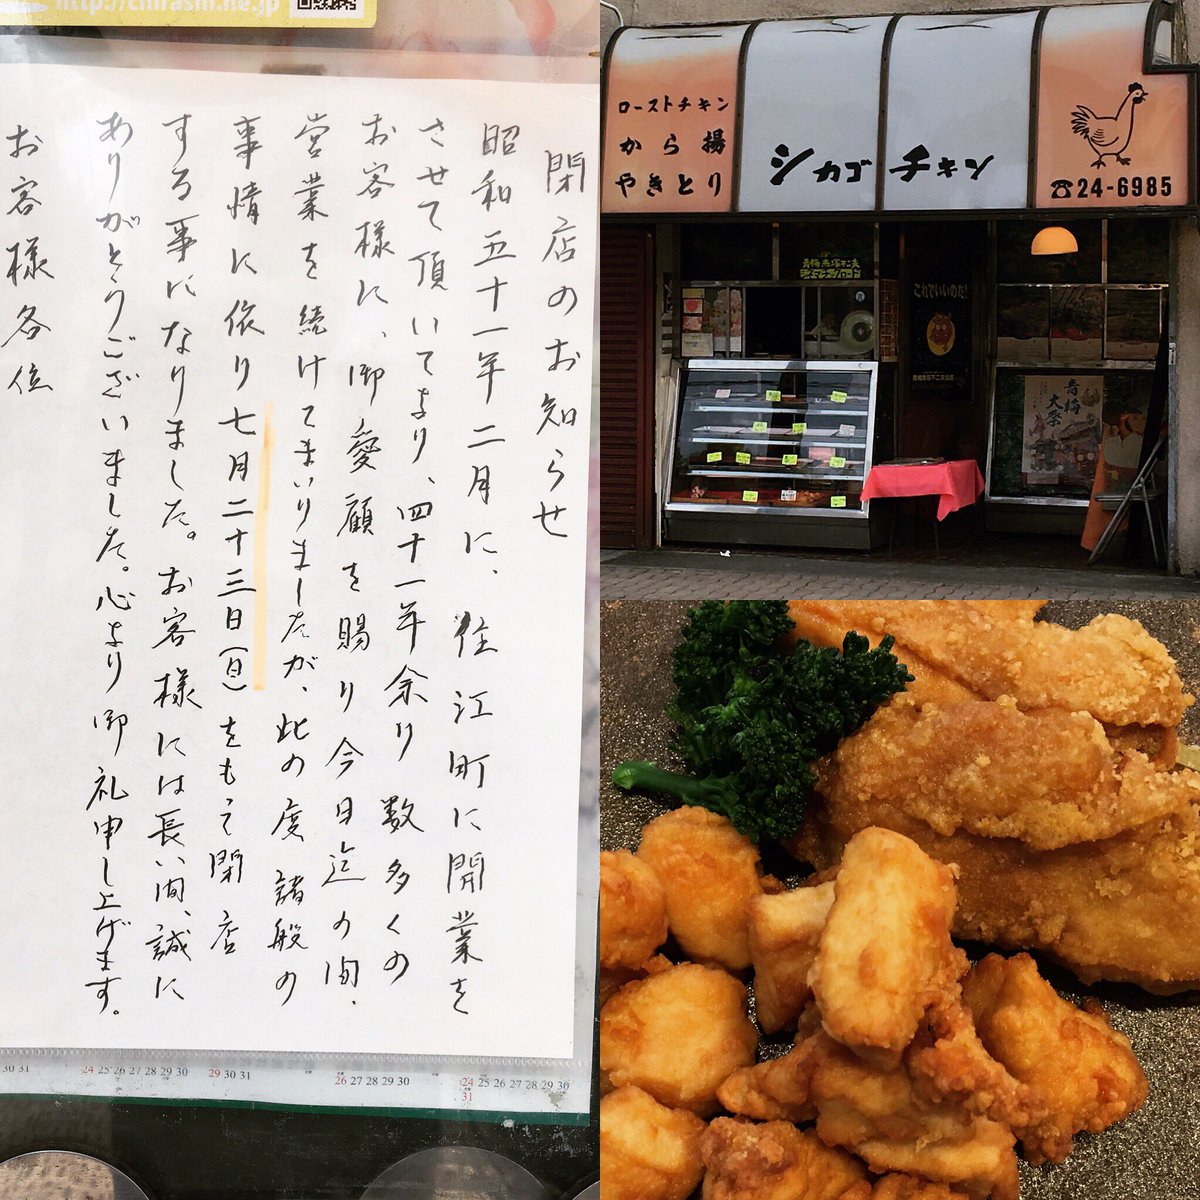 http://chirashi.ne.jp
閉店のお知らせ
昭和五十一年二月に、住江町に開業を
させて頂いてより、四十一年余り数多くの
お客様に、御愛顧を賜り今日迄の間、
営業を続けてまいりましたが、此の度諸般の
事情に依り七月二十三日(日)をもって閉店
する事になりました。お客様には長い間、誠に
ありがとうございました。心より御礼申し上げます。
お客様各位
30 31
24 25 26 27 28 29 30
29 30 31
26 27 28 29 30
24 25 26 27 28 29 30
31
ローストチキン
から揚
やきとり
シカゴチキン
☎24-6985
青梅赤塚不二夫
シネマチックロード
これでいいのだ!
青梅赤塚不二夫会館
青梅大祭